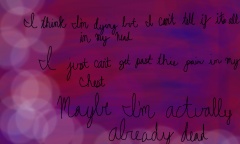 I think I'm dying but I can't tell if it's all
in my head
I just can't get past this pain in my
Chest
Maybe I'm actually
already dead